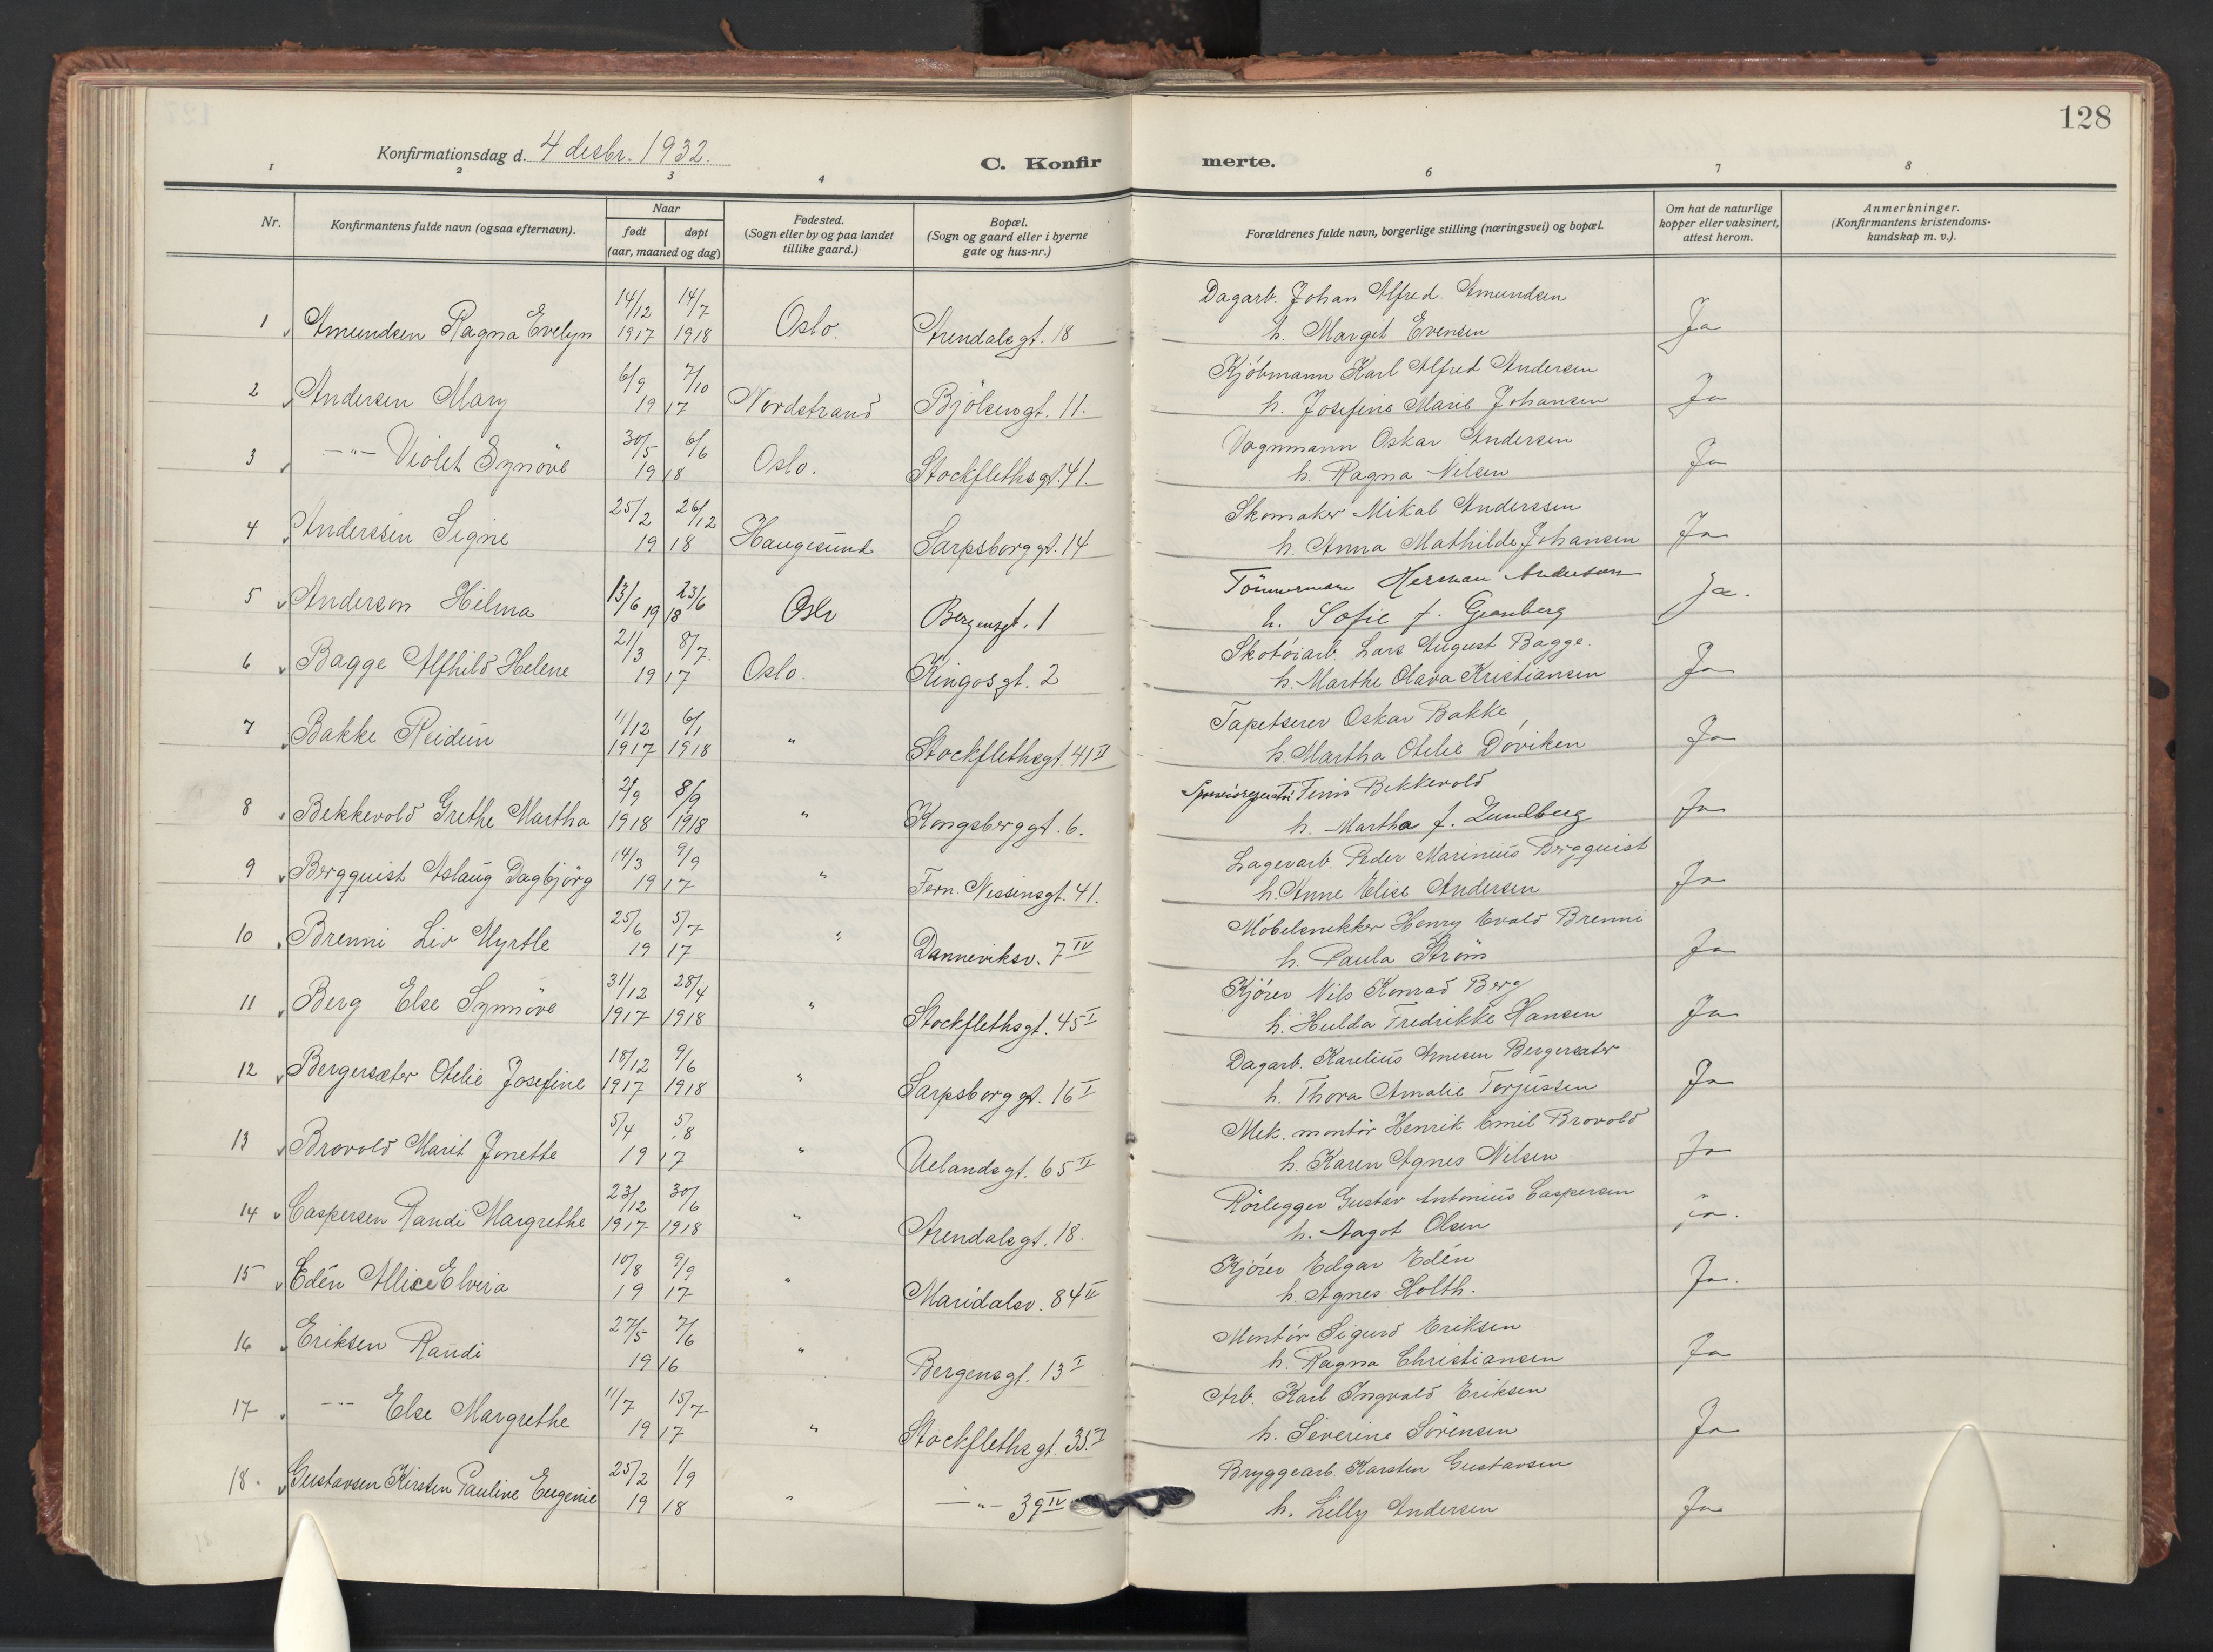 128
Konfirmationsdag d. 4 desbr. 1932.
C. Konfirmerte.
1 2 3 4 6 7 8
Nr.
Konfirmantens fulde navn (ogsaa efternavn).
Naar
født døpt
(aar, maaned og dag)
Fødested.
(Sogn eller by og paa landet
tillike gaard.)
Bopæl.
(Sogn og gaard eller i byerne
gate og hus-nr.)
Forældrenes fulde navn, borgerlige stilling (næringsvei) og bopæl.
Om hat de naturlige
kopper eller vaksinert,
attest herom.
Anmerkninger.
(Konfirmantens kristendoms-
kundskap m. v.).
14/12 14/7 Dagarb. Johan Alfred Amundsen
1 Amundsen Ragna Evelyn 1917 1918 Oslo. Arendalsgt. 18 h. Margit Evensen Ja
6/9 7/10 Kjöbmann Karl Alfred Andersen
2 Andersen Mary 1917 Nordstrand Bjölsengt. 11. h. Josefine Marie Johansen Ja
30/5 6/6 Vognmann Oskar Andersen
3 -"- Violet Synöve 1918 Oslo. Stockflethsgt. 41. h. Ragna Nilsen Ja
25/2 26/12 Skomaker Mikal Anderssen
4 Anderssen Signe 1918 Haugesund Sarpsborggt. 14 h. Anna Mathilde Johansen Ja
13/6 23/6 Tömmermann Herman Anderson
5 Anderson Hilma 1918 Oslo Bergensgt. 1 h. Sofie f. Granberg Ja.
21/3 8/7 Skotöiarb. Lars August Bagge.
6 Bagge Alfhild Helene 1917 Oslo. Kingosgt. 2 h. Marthe Olava Kristiansen Ja
11/12 6/1 Tapetserer Oskar Bakke
7 Bakke Reidun 1917 1918 " Stockflethsgt. 41 II h. Martha Otelie Döviken Ja
2/9 8/9 Finn Bekkevold
8 Bekkevold Grethe Martha 1918 1918 " Kongsberggt. 6. h. Martha f. Lundberg Ja
14/3 9/9 Lagerarb. Peder Marinius Bergquist
9 Bergquist Aslaug Dagbjörg 1917 " Fern. Nissensgt. 41. h. Anne Elise Andersen Ja
25/6 5/7 Möbelsnekker Henry Evald Brenni
10 Brenni Liv Myrtle 1917 " Danneviksv. 7 IV h. Paula Ström Ja
31/12 28/4 Kjörer Nils Konrad Berg
11 Berg Else Synnöve 1917 1918 " Stockflethsgt. 45 I h. Hulda Fredrikke Hansen Ja
18/12 9/6 Dagarb. Karelius Arnesen Bergersæter
12 Bergersæter Otelie Josefine 1917 1918 " Sarpsborggt. 16 I h. Thora Amalie Torjussen Ja
5/4 5/8 Mek. montör Henrik Emil Brovold
13 Brovold Marit Jonette 1917 " Uelandsgt. 65 II h. Karen Agnes Nilsen Ja
23/12 30/6 Rörlegger Gustav Antonius Caspersen
14 Caspersen Randi Margrethe 1917 1918 " Arendalsgt. 18. h. Aagot Olsen ja.
10/8 9/9 Kjörer Edgar Edén
15 Edén Allice Elvira 1917 " Maridalsv. 84 II h. Agnes Holth. Ja.
27/5 7/6 Montör Sigurd Eriksen
16 Eriksen Randi 1916 " Bergensgt. 13 I h. Ragna Christiansen Ja
11/7 15/7 Arb. Karl Ingvald Eriksen
17 -"- Else Margrethe 1917 " Stockflethsgt. 35 I h. Severine Sörensen Ja
25/2 1/9 Bryggearb. Karsten Gustavsen
18. Gustavsen Kirsten Pauline Eugenie 1918 " -"- 39 IV h. Lilly Andersen Ja